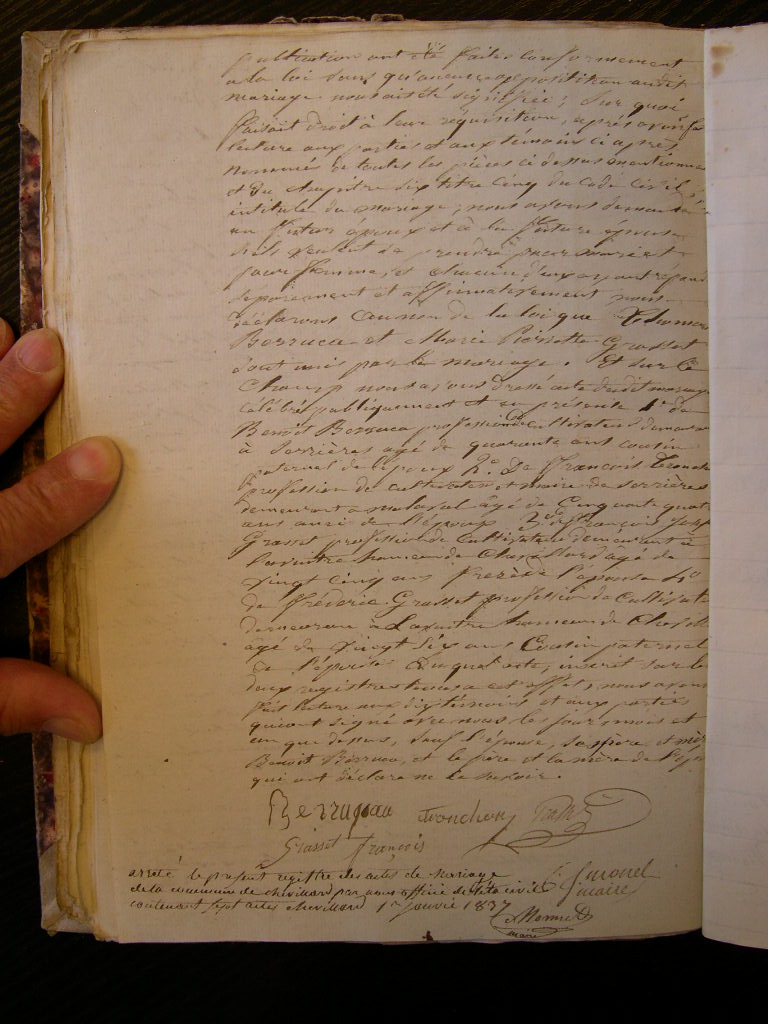 publication ont été faites conformement
a la loi sans qu'aucune opposition audit
mariage nous ait été signifiée; Sur quoi
faisant droit à leur requisition, après avoir fait
lecture aux parties et aux témoins ci après
nommés de toutes les pièces ci dessus mentionnées
et du chapitre six titre cinq du Code Civil
intitulé du mariage; nous avons demandé
au futur époux et à la future épouse
s'ils veulent se prendre pour mari et
pour femme, et chacun d'eux ayant répondu
séparement et affirmativement nous
déclarons au nom de la loi que Thomas
Berruca et Marie Pierrette Grasset
sont unis par le mariage. Et sur le
champ nous avons dressé acte dudit mariage
célébré publiquement et en présence 1° de
Benoît Berruca profession de cultivateur demeurant
à Serrières agé de quarante ans cousin
paternel de l'époux 2° De François Tronchon
profession de cultivateur et maire de Serrières
demeurant a agé de Cinquante quatre
ans aussi de l'époux 3° de François Joseph
Grasset profession de cultivateur demeurant à
Lavaitre hameau de Chevillard agé de
vingt cinq ans frere de l'épouse 4°
de Fréderic Grasset profession de Cultivateur
demeurant à Lavaitre hameau de Chevillard
âgé de vingt six ans Cousin paternel
de l'épouse Duquel acte, inscrit sur les
deux registres tenus a cet effet, nous avons
fait lecture aux dix témoins et aux parties
qui ont signé avec nous les jour, mois et
an que dessus, sauf l'épouse, ses père et mère
Benoit Berruca, et le père et la mère de l'époux
qui ont déclaré ne le savoir.
Berruquau tronchon Grasset
Grasset françois
arreté le présent registre des actes de mariage
de la commune de chevillard par nous officier de l'état civil
maire
contenant sept actes chevillard 1er janvier 1837
maire